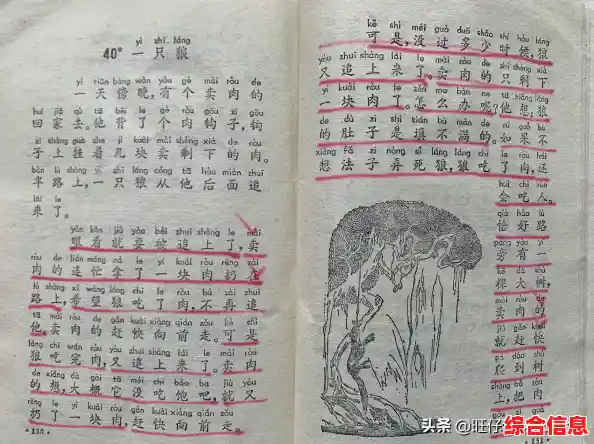 yì zhī láng
40° 一只狼
yì tiān bàng wǎn yǒu gè mài ròu de
一天傍晚,有个卖肉的
huí jiā qù tā bēi le gè ròu gōu zi gōu
回家去。他背了个肉钩子,钩
zi shàng guà zhe jǐ kuài mài shèng xià de ròu
子上挂着几块卖剩下的肉。
bàn lù shàng yì zhī láng cóng tā hòu miàn zhuī
半路上,一只狼从他后面追
lái le
来了。
yǎn kàn jiù yào bèi zhuī shàng le mài
眼看就要被追上了,卖
ròu de lián máng ná le yí kuài ròu rēng zài
肉的连忙拿了一块肉扔在
lù shàng xī wàng láng chī le ròu bú zài zhuī
路上,希望狼吃了肉,不再追
tā mài ròu de gǎn kuài xiàng qián zǒu kě shì
他。卖肉的赶快向前走。可是
láng chī wán ròu yòu zhuī shàng lái le mài ròu
狼吃完肉,又追上来了。卖肉
de xiǎng dà gài tā méi chī bǎo ba jiù yòu
的想,大概它没吃饱吧,就又
rēng le yí kuài ròu gǎn kuài xiàng qián zǒu
扔了一块肉,赶快向前走。
kě shì méi guò duō shǎo shí hòu láng
可是,没过多少时候,狼
yòu zhuī shàng lái le mài ròu de zhǐ shèng xià
又追上来了。卖肉的只剩下
yí kuài ròu le zěn me bàn ne tā xiǎng láng
一块肉了。怎么办呢?他想:狼
de dù zi shì tián bù mǎn de rú guǒ bù
的肚子是填不满的。如果不
xiǎng fǎ zi nòng sǐ láng láng chī le ròu hái
想法子弄死狼,狼吃了肉,还
huì chī rén
会吃人。
qià hǎo lù
恰好路
páng yǒu yì
旁有一
kē dà shù
棵大树,
mài ròu de
卖肉的
jiù gǎn kuài
就赶快
pá dào shù
爬到树
shàng bǎ ròu
上,把肉
头条 @旺仔综合信息